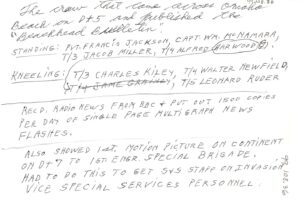 The crew that came across Omaha
Beach on D+5 and published the
"Beachhead Bulletin"
STANDING: PVT. FRANCIS JACKSON, CAPT. WM. McNAMARA,
T/3 JACOB MILLER, T/4 ALFRED HARWOOD
KNEELING: T/3 CHARLES KILEY, T/4 WALTER NEWFIELD,
T/4 JAME T/5 LEONARD RUDER
REC'D. RADIO NEWS FROM BBC & PUT OUT 1500 COPIES
PER DAY OF SINGLE PAGE MULTIGRAPH NEWS
FLASHES.
ALSO SHOWED 1ST. MOTION PICTURE ON CONTINENT
ON D+7 TO 1ST ENGR. SPECIAL BRIGADE.
HAD TO DO THIS TO GET SVS STAFF ON INVASION
VICE SPECIAL SERVICES PERSONNEL.